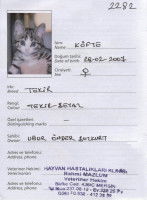 2282
İsim
Name
KÖFTE
Doğum tarihi
Date of birth
28-02-2007
Cinsiyeti
Sex
♀
Irkı
Breed
TEKİR
Rengi
Colour
TEKİR-BEYAZ
Özel işareti
Distinguishing marks
Sahibi
Owner
UĞUR ÖNDER BOZKURT
Adres ve telefonu
Address, phone
Adres ve telefonu
Address, phone
Veteriner Hekimi
Veterinarian
Adres ve telefonu
Address, phone
HAYVAN HASTALIKLARI KLİNİĞİ
Nahmi MAZLUM
Veteriner Hekim
MERSİN